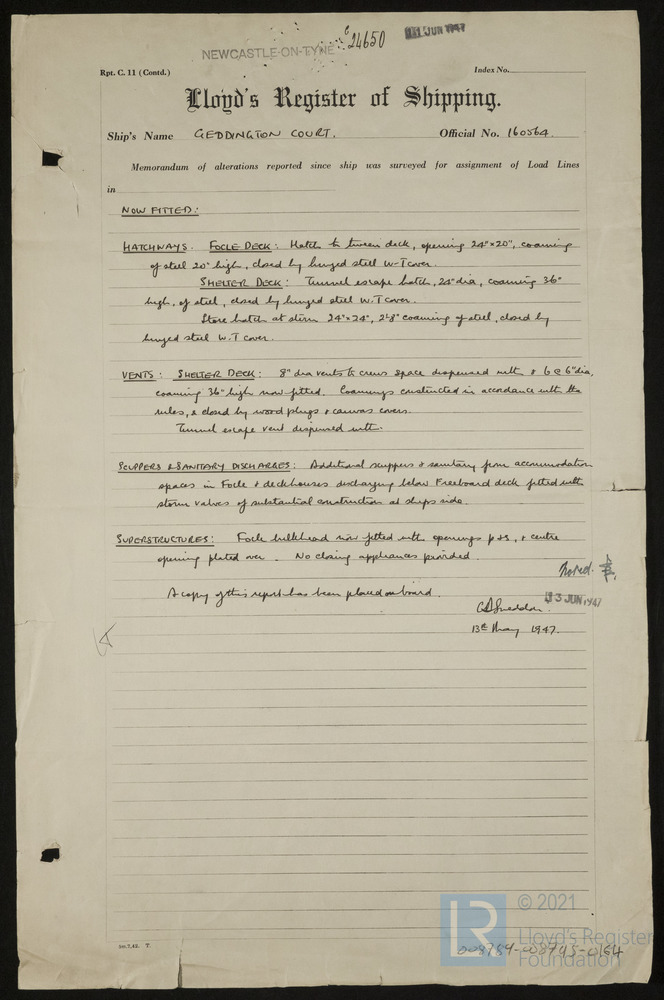 NEWCASTLE-ON-TYNE c 24650
JUN 1947
Rpt. C. 11 (Contd.) Index No.
Lloyd's Register of Shipping.
Ship's Name GEDDINGTON COURT. Official No. 160564.
Memorandum of alterations reported since ship was surveyed for assignment of Load Lines
in
NOW FITTED:
HATCHWAYS. FOCLE DECK: Hatch to tween deck, opening 24"×20", coaming
of steel 20" high, closed by hinged steel W-T cover.
SHELTER DECK: Tunnel escape hatch, 24" dia, coaming 36"
high, of steel, closed by hinged steel W.T cover.
Store hatch at stern 24"×24", 2'8" coaming of steel, closed by
hinged steel W.T cover.
VENTS: SHELTER DECK: 8" dia vents to crews space dispensed with & 6 @ 6" dia,
coaming 36" high now fitted. Coamings constructed in accordance with the
rules, & closed by wood plugs & canvas covers.
Tunnel escape vent dispensed with.
SCUPPERS & SANITARY DISCHARGES: Additional scuppers & sanitary from accommodation
spaces in Focle & deckhouses discharging below Freeboard deck fitted with
storm valves of substantial construction at ships side.
SUPERSTRUCTURES: Focle bulkhead now fitted with openings p & s, & centre
opening plated over. No closing appliances provided.
Noted.
A copy of this report has been placed on board.
3 JUN 1947
13th May 1947.
5m.7.45. T.
© 2021
Lloyd's Register
Foundation
008784-008795-0164